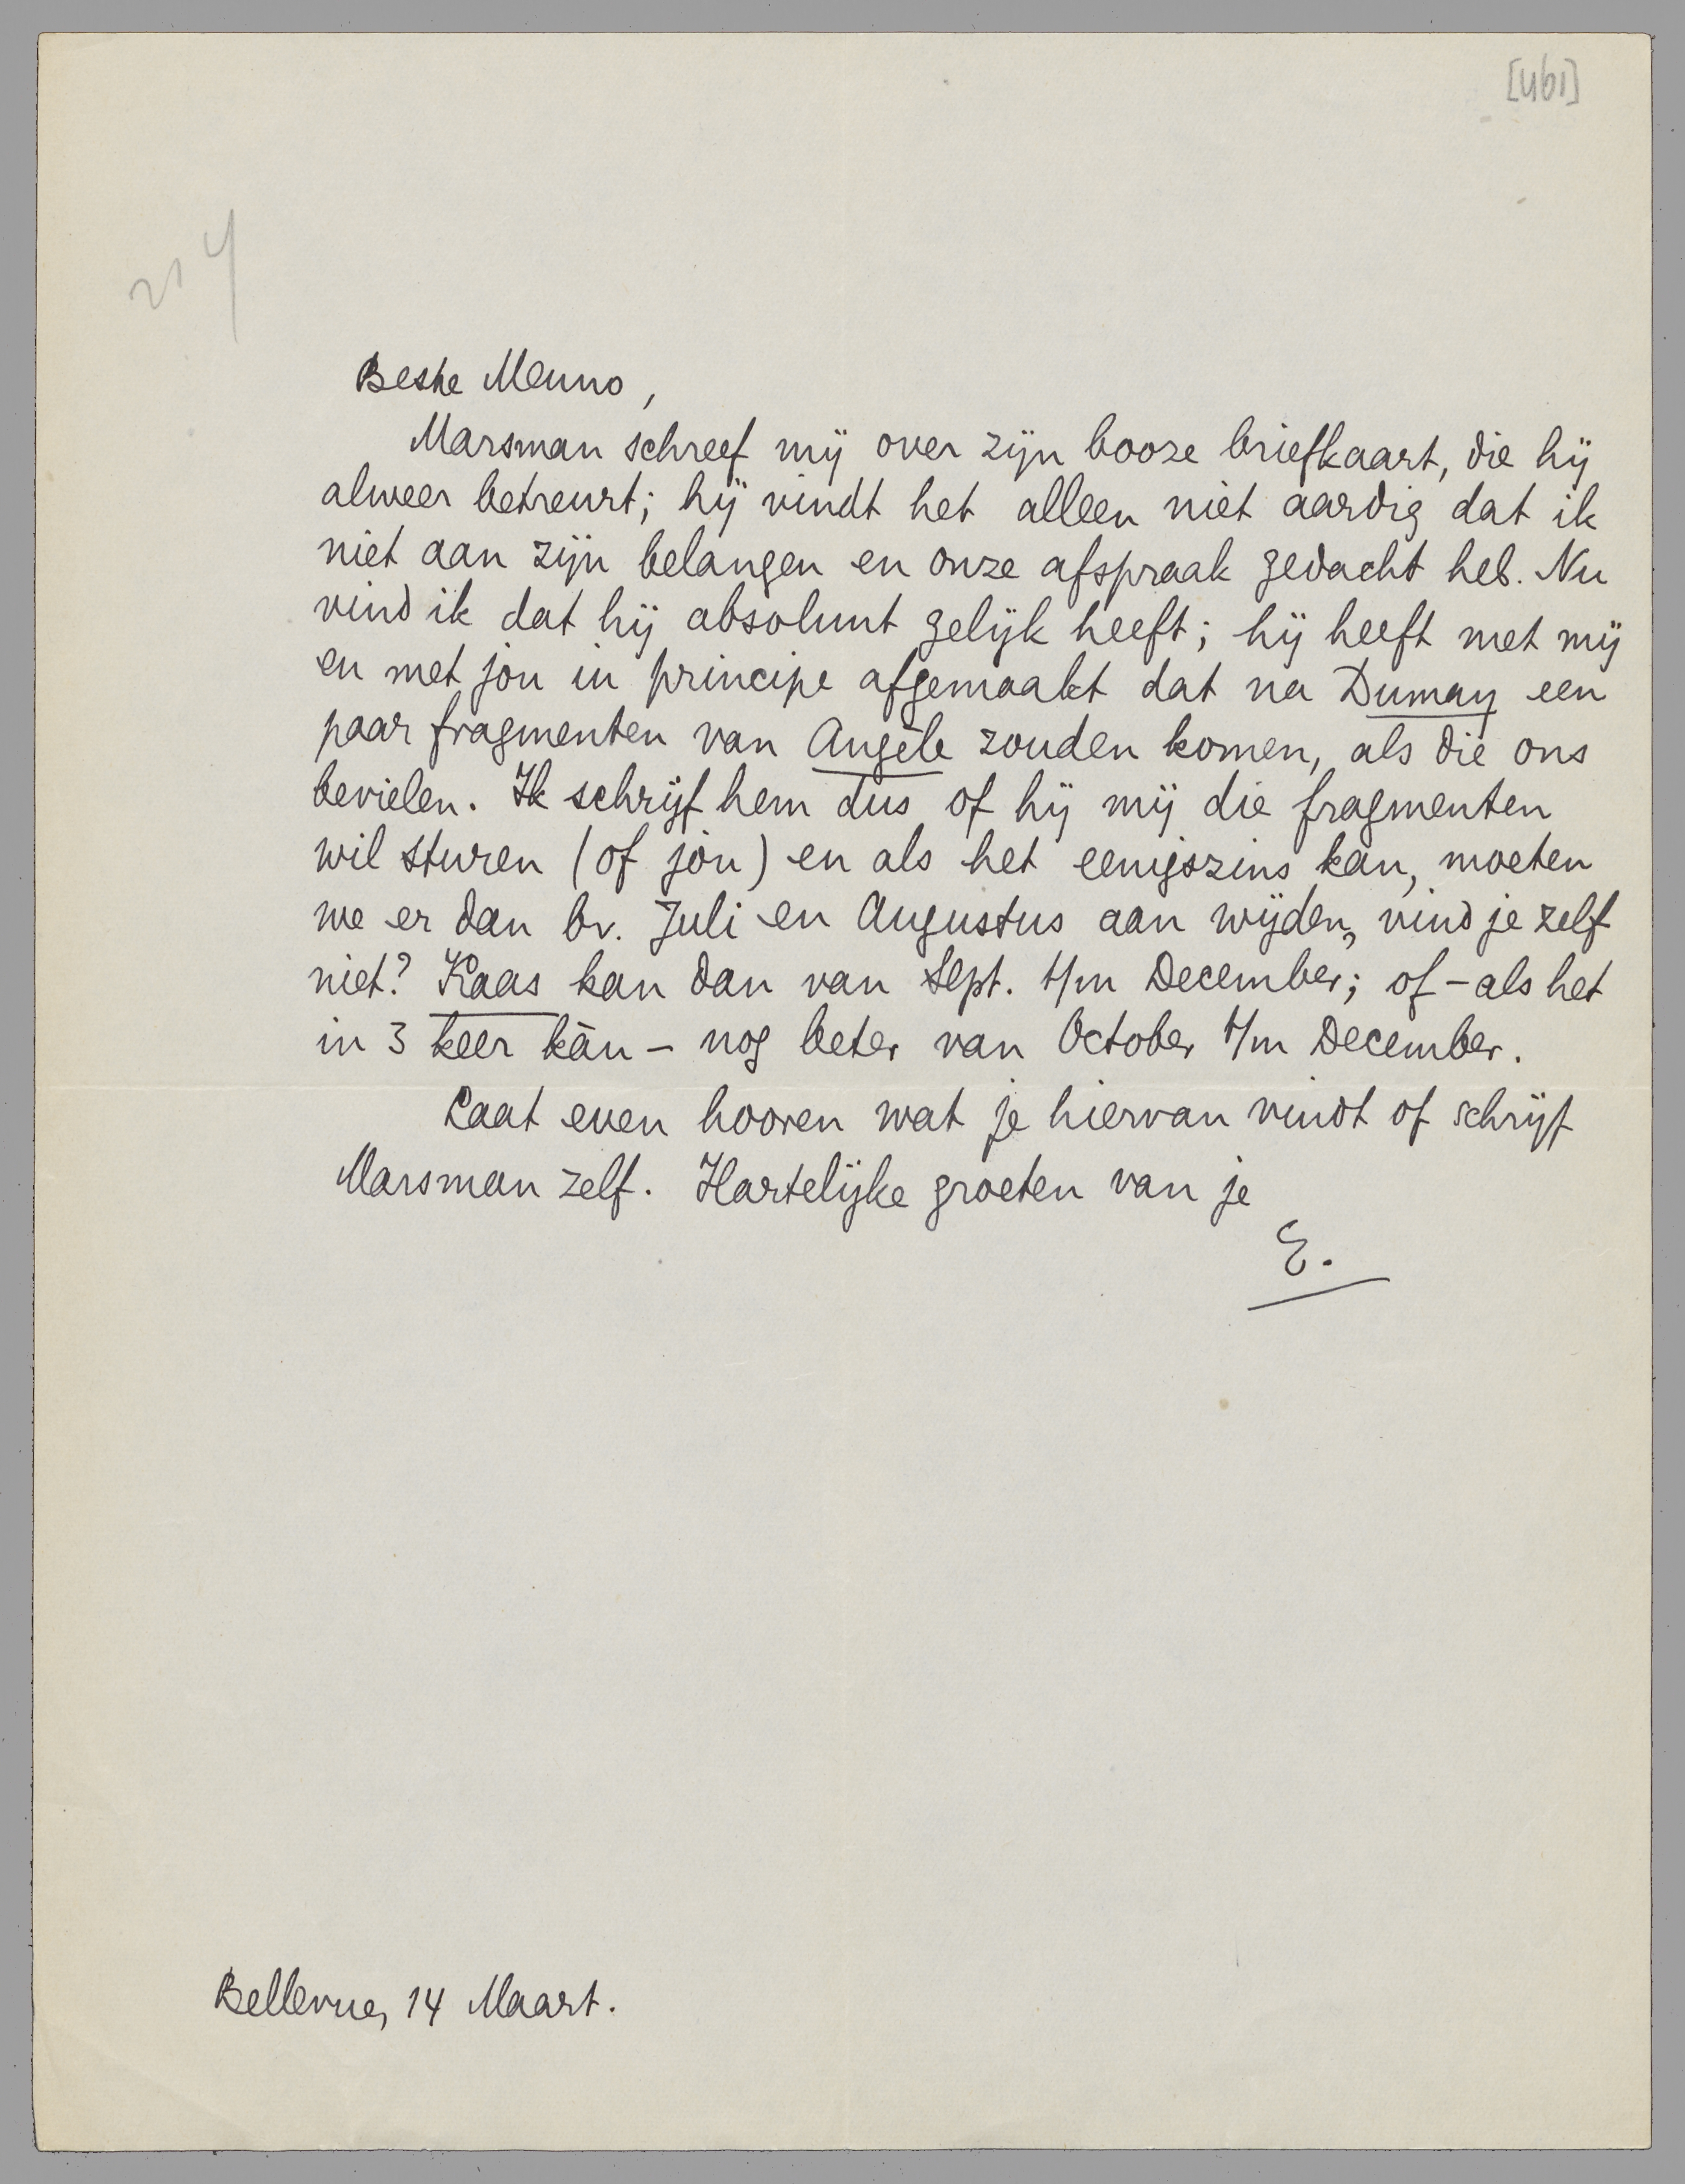 [461]
214
Beste Menno,
Marsman schreef mij over zijn booze briefkaart, die hij
alweer betreurt; hij vindt het alleen niet aardig dat ik
niet aan zijn belangen en onze afspraak gedacht heb. Nu
vind ik dat hij absoluut gelijk heeft; hij heeft met mij
en met jou in principe afgemaakt dat na Dumay een
paar fragmenten van Angèle zouden komen, als die ons
bevielen. Ik schrijf hem dus of hij mij die fragmenten
wil sturen (of jou) en als het eenigszins kan, moeten
we er dan bv. Juli en Augustus aan wijden, vind je zelf
niet? Kaas kan dan van Sept. t/m December; of - als het
in 3 keer kàn - nog beter van October t/m December.
Laat even hooren wat je hiervan vindt of schrijf
Marsman zelf. Hartelijke groeten van je
E.
Bellevue, 14 Maart.